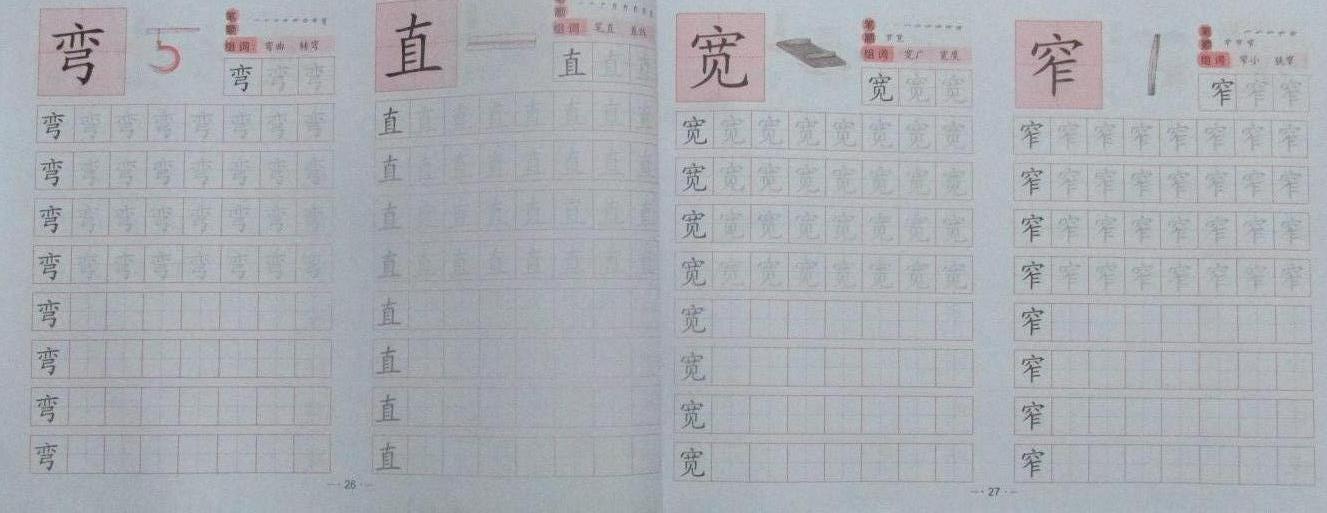 弯
笔顺
组词: 弯曲 转弯
弯弯弯
弯弯弯弯弯弯弯弯
弯弯弯弯弯弯弯弯
弯弯弯弯弯弯弯弯
弯弯弯弯弯弯弯弯
弯
弯
弯
弯
直
笔顺
组词: 笔直 直线
直直直
直直直直直直直直
直直直直直直直直
直直直直直直直直
直直直直直直直直
直
直
直
直
- 26 -
宽
笔顺
组词: 宽广 宽度
宽宽宽
宽宽宽宽宽宽宽宽
宽宽宽宽宽宽宽宽
宽宽宽宽宽宽宽宽
宽宽宽宽宽宽宽宽
宽
宽
宽
宽
窄
笔顺
组词: 窄小 狭窄
窄窄窄
窄窄窄窄窄窄窄窄
窄窄窄窄窄窄窄窄
窄窄窄窄窄窄窄窄
窄窄窄窄窄窄窄窄
窄
窄
窄
窄
- 27 -